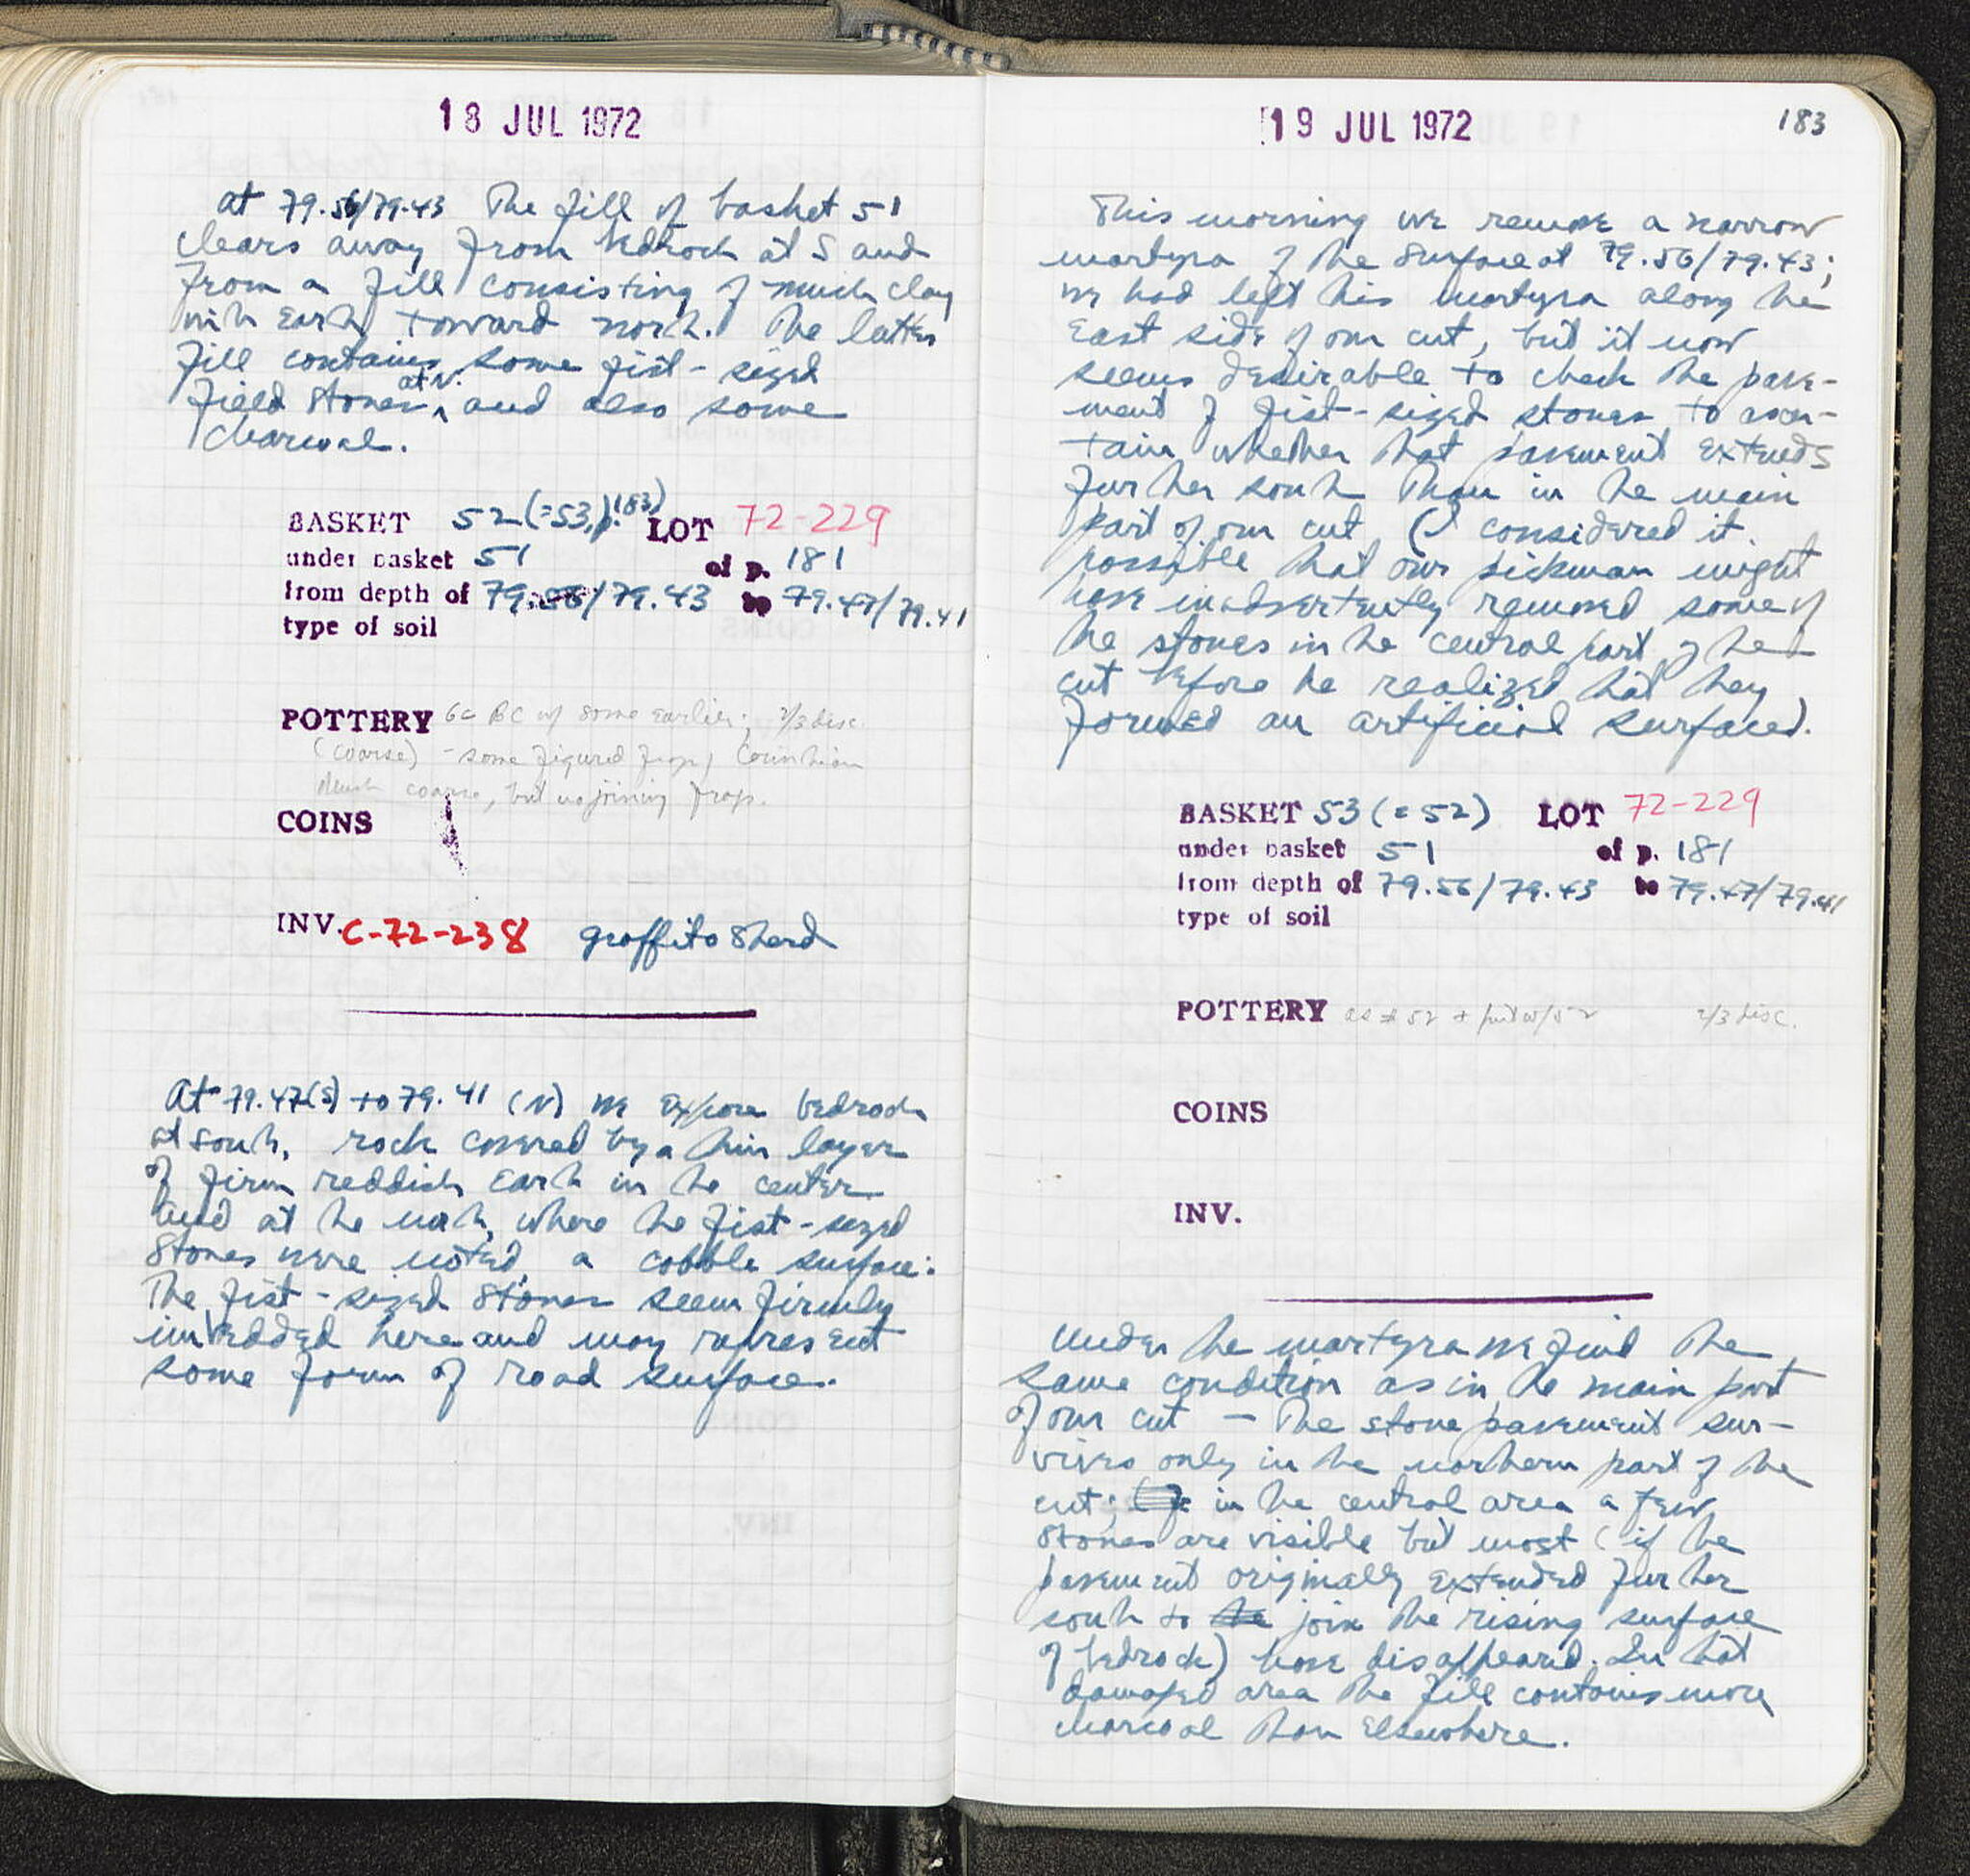 18 JUL 1972
at 79.56/79.43 The fill of basket 51
clears away from bedrock at S and
from a fill consisting of much clay
with earth toward north. The latter
fill contains some fist-sized
field stones at N. and also some
charcoal.
BASKET 52 (=53, p. 183) LOT 72-229
under basket 51 of p. 181
from depth of 79.56/79.43 to 79.47/79.41
type of soil
POTTERY 6c BC w/ some earlier; 2/3 disc.
(coarse) - some figured frags, Corinthian
Much coarse, but no joining frags.
COINS
INV. C-72-238 graffito sherd
At 79.47(S) to 79.41 (N) we expose bedrock
at south, rock covered by a thin layer
of firm reddish earth in the center
and at the north, where the fist-sized
stones were noted, a cobble surface:
The fist-sized stones seem firmly
imbedded here and may represent
some form of road surface.
19 JUL 1972
183
This morning we remove a narrow
martyra of the surface at 79.56/79.43;
we had left this martyra along the
East side of our cut, but it now
seems desirable to check the pave-
ment of fist-sized stones to ascer-
tain whether that pavement extends
further south than in the main
part of our cut (I considered it
possible that our pickman might
have inadvertently removed some of
the stones in the central part of the
cut before he realized that they
formed an artificial surface).
BASKET 53 (=52) LOT 72-229
under basket 51 of p. 181
from depth of 79.56/79.43 to 79.47/79.41
type of soil
POTTERY as # 52 + put w/52 2/3 disc.
COINS
INV.
Under the martyra we find the
same condition as in the main part
of our cut - The stone pavement sur-
vives only in the northern part of the
cut; in the central area a few
stones are visible but most (if the
pavement originally extended further
south to join the rising surface
of bedrock) have disappeared. In that
damaged area the fill contains more
charcoal than elsewhere.